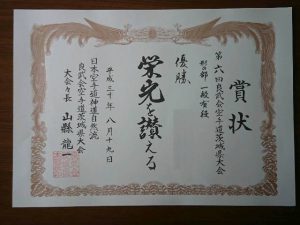 賞状
第六回良武会空手道茨城県大会
形の部 一般有段
優勝
栄光を讃える
平成三十年 八月十九日
日本空手道神道自然流
良武会空手道茨城県大会
大会々長 山縣龍一